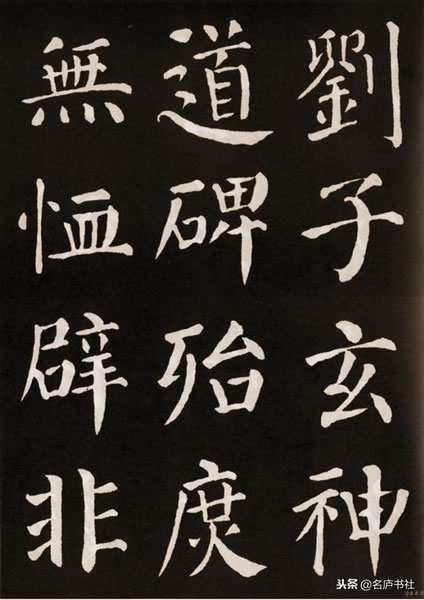 劉子玄神
道碑殆庶
無恤辟非
头条 @名庐书社